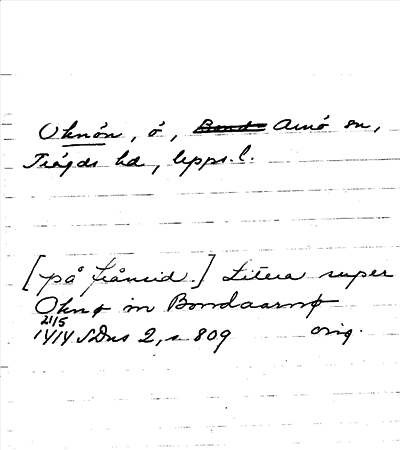 Oknön, ö, Bond- Arnö sn,
Trögds hd, Upps. l.
[på frånsid.] Litera super
Oknø in Bondaarnø
21/5
1414 SDns 2, s 809 orig.